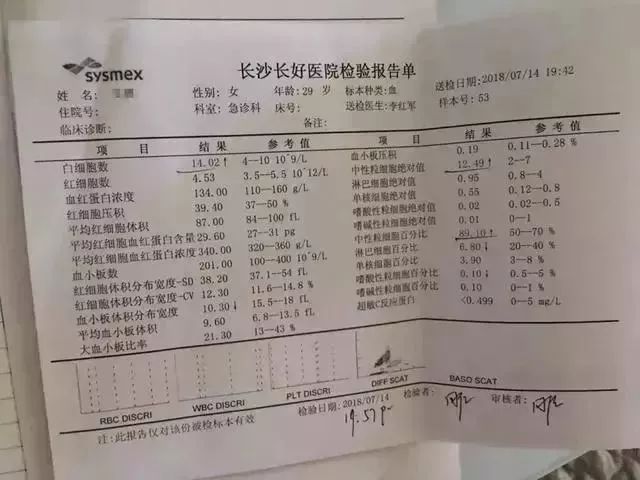 sysmex
长沙长好医院检验报告单
姓 名: 性别: 女 年龄: 29 岁 标本种类: 血 送检日期: 2018/07/14 19:42
住院号: 科室: 急诊科 床号: 送检医生: 李红军 样本号: 53
临床诊断: 备注:
项 目 结 果 参 考 值 项 目 结 果 参 考 值
白细胞数 14.02↑ 4-10 10^9/L 血小板压积 0.19 0.11-0.28 %
红细胞数 4.53 3.5-5.5 10^12/L 中性粒细胞绝对值 12.49↑ 2-7
血红蛋白浓度 134.00 110-160 g/L 淋巴细胞绝对值 0.95 0.8-4
红细胞压积 39.40 37-50 % 单核细胞绝对值 0.55 0.12-0.8
平均红细胞体积 87.00 84-100 fL 嗜酸性粒细胞绝对值 0.02 0.02-0.5
平均红细胞血红蛋白含量 29.60 27-31 pg 嗜碱性粒细胞绝对值 0.01 0-1
平均红细胞血红蛋白浓度 340.00 320-360 g/L 中性粒细胞百分比 89.10↑ 50-70 %
血小板数 201.00 100-400 10^9/L 淋巴细胞百分比 6.80↓ 20-40 %
红细胞体积分布宽度-SD 38.20 37.1-54 fL 单核细胞百分比 3.90 3-8 %
红细胞体积分布宽度-CV 12.30 11.6-14.8 % 嗜酸性粒细胞百分比 0.10↓ 0.5-5 %
血小板分布宽度 10.30↓ 15.5-18 fL 嗜碱性粒细胞百分比 0.10 0-1 %
平均血小板体积 9.60 6.8-13.5 fL 超敏C反应蛋白 <0.499 0-5 mg/L
大血小板比率 21.30 13-43 %
RBC DISCRI WBC DISCRI PLT DISCRI DIFF SCAT BASO SCAT
注: 此报告仅对该份被检标本有效 检验日期: 2018/07/14 检验者: 审核者:
19.57